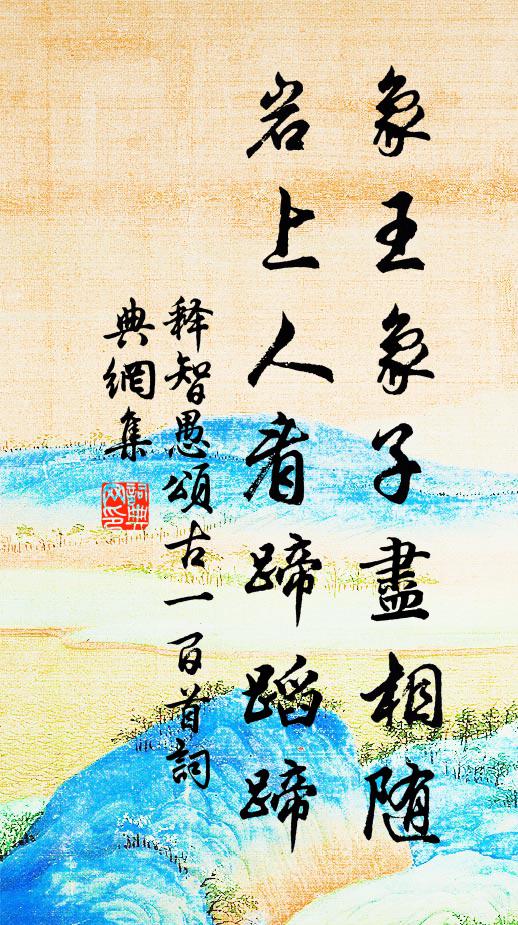 象王象子盡相随
岩上人看蹄蹈蹄
释智愚頌古一百首詞
典網集
詞典网印